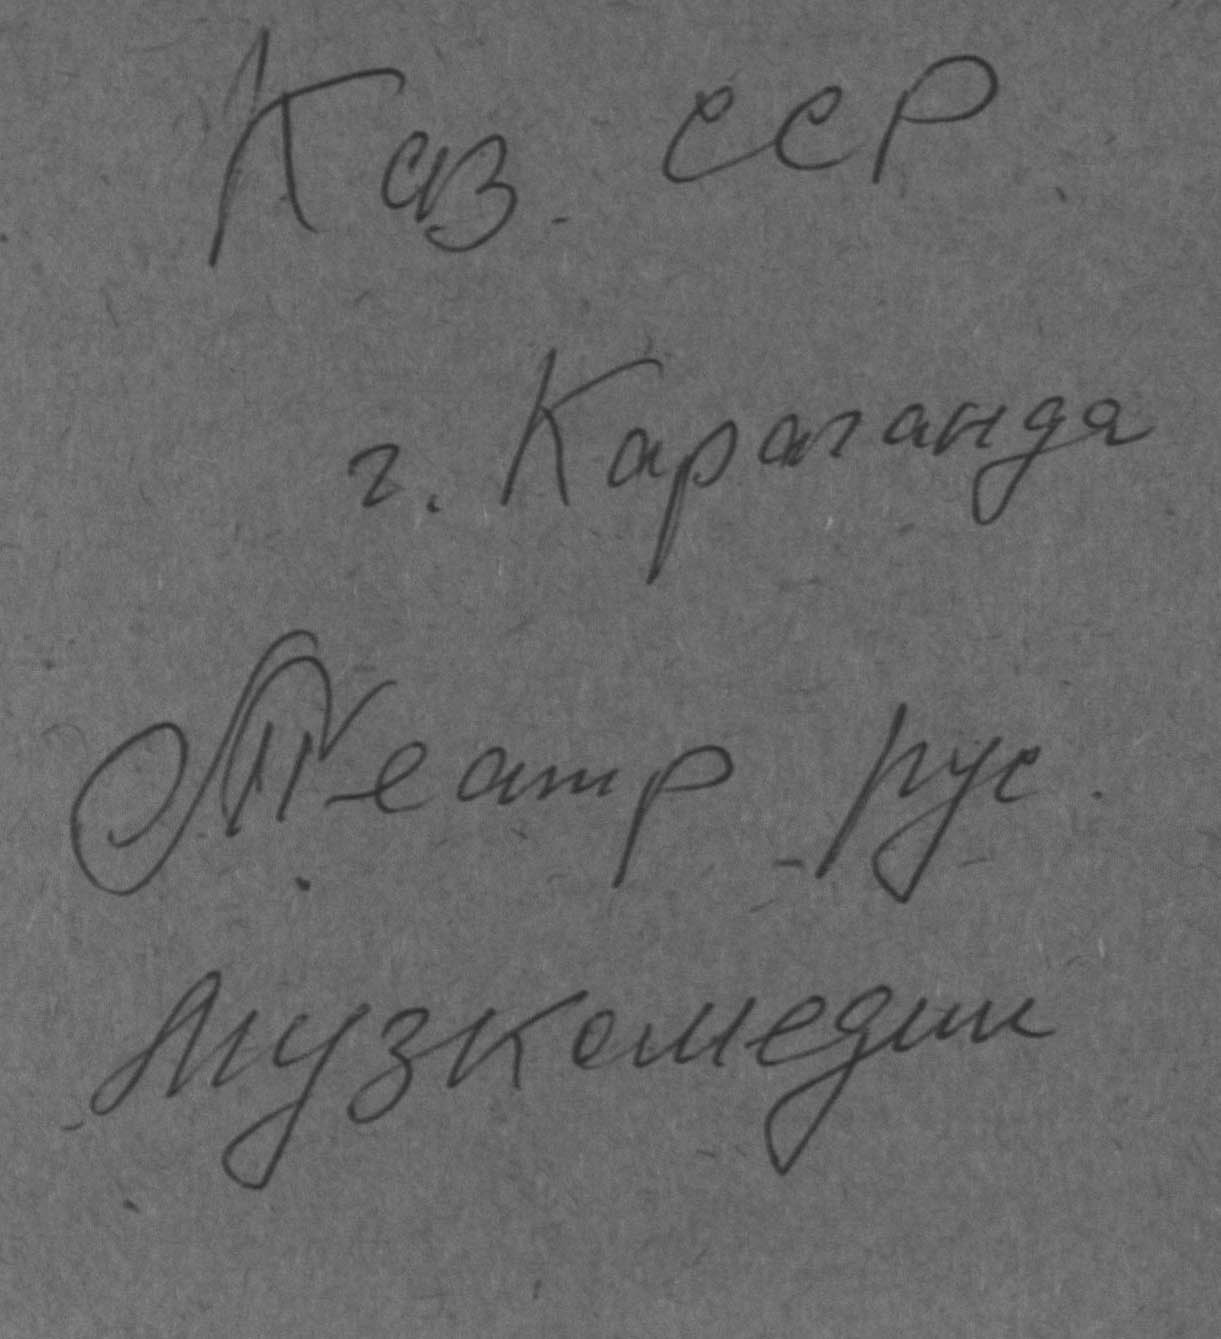 Каз. ССР
г. Караганда
Театр рус.
музкомедии